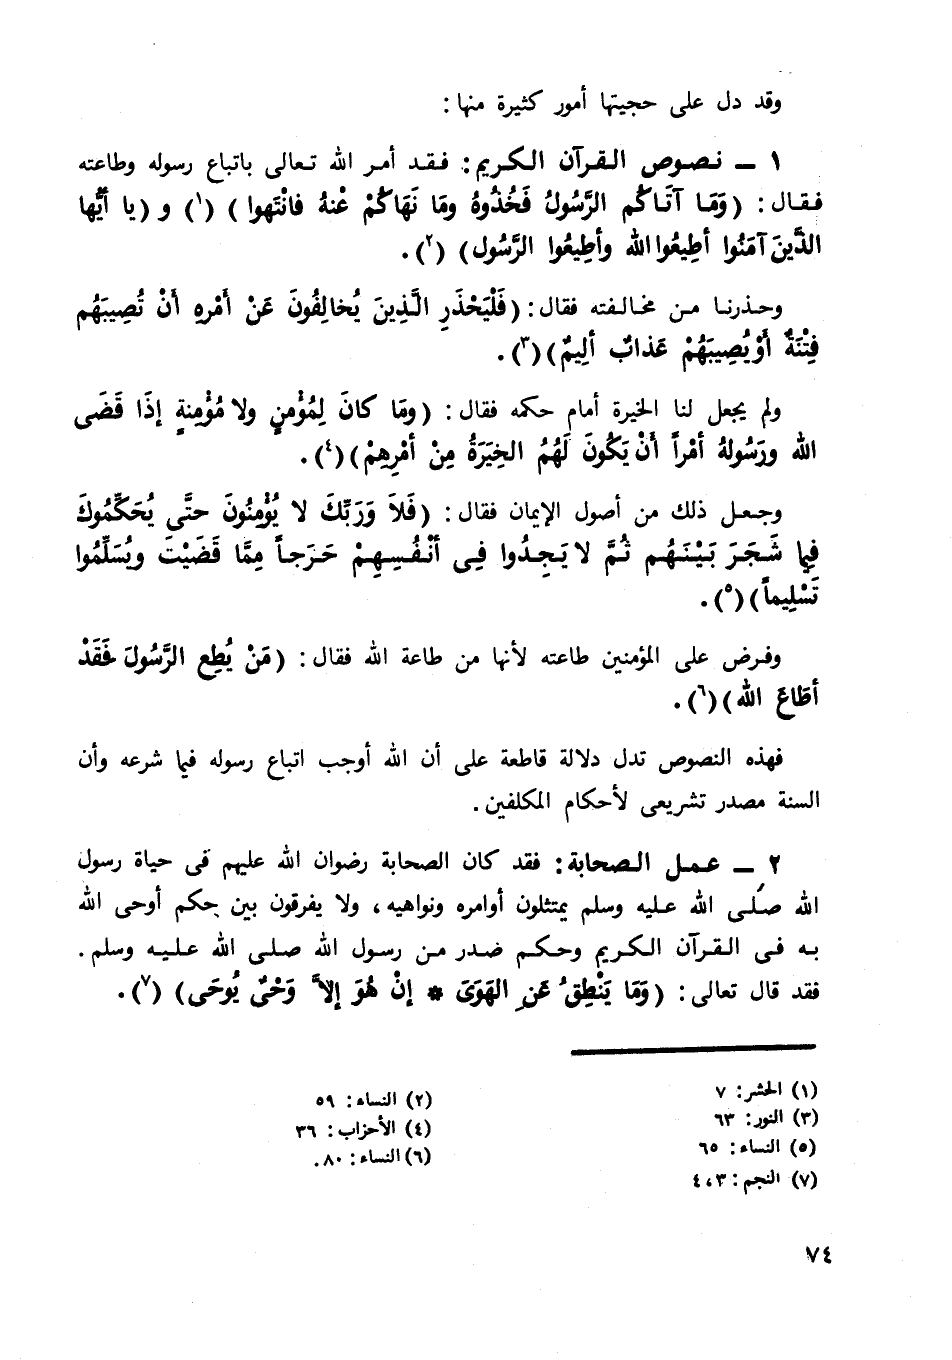 وقد دل على حجيتها أمور كثيرة منها :
١ ــ نصوص القرآن الكريم : فقد أمر الله تعالى باتباع رسوله وطاعته
فقال : (وَمَا آتَاكُم الرَّسُولُ فَخُذُوهُ ومَا نَهَاكُمْ عْنهُ فانْتَهوا) (١) و (يا أيُّها
الذَّينَ آمَنُوا أطِيعُوا الله وأطِيعُوا الرَّسُول) (٢) .
وحذرنا من مخالفته فقال : (فَلْيَحْذَرِ الَّذِينَ يُخالِفُونَ عَنْ أمْرِهِ أنْ تُصِيبَهُم
فِتْنَةٌ أوْ يُصِيبَهُمْ عَذابٌ أليِمٌ)(٣) .
ولم يجعل لنا الخيرة أمام حكمه فقال : (ومَا كانَ لِمُؤْمنٍ ولا مُؤْمِنةٍ إذَا قَضَى
الله ورَسُولهُ أمْراً أنْ يَكُونَ لَهُمُ الخِيَرَةُ مِنْ أمْرِهِمْ)(٤) .
وجعل ذلك من أصول الإيمان فقال : (فَلاَ وَرَبِّكَ لا يُؤْمِنُونَ حتَّى يُحَكِّمُوكَ
فِيما شَجَرَ بَيْنَهُم ثُمَّ لا يَجِدُوا فِي أنْفُسِهِمْ حَرَجاً مِمَّا قَضَيْتَ ويُسَلِّمُوا
تَسْلِيماً)(٥) .
وفرض على المؤمنين طاعته لأنها من طاعة الله فقال : (مَنْ يُطِع الرَّسُولَ فَقَدْ
أطَاعَ الله)(٦) .
فهذه النصوص تدل دلالة قاطعة على أن الله أوجب اتباع رسوله فيما شرعه وأن
السنة مصدر تشريعى لأحكام المكلفين .
٢ ــ عمل الصحابة : فقد كان الصحابة رضوان الله عليهم فى حياة رسول
الله صلى الله عليه وسلم يمتثلون أوامره ونواهيه ، ولا يفرقون بين حكم أوحى الله
به فى القرآن الكريم وحكم صدر من رسول الله صلى الله عليه وسلم .
فقد قال تعالى : (وَمَا يَنْطِقُ عَنِ الهَوَىَ * إنْ هُوَ إلاَّ وَحْىٌ يُوحَى) (٧) .
(١) الحشر : ٧
(٢) النساء : ٥٩
(٣) النور : ٦٣
(٤) الأحزاب : ٣٦
(٥) النساء : ٦٥
(٦) النساء : ٨٠ .
(٧) النجم : ٣ ، ٤
٧٤